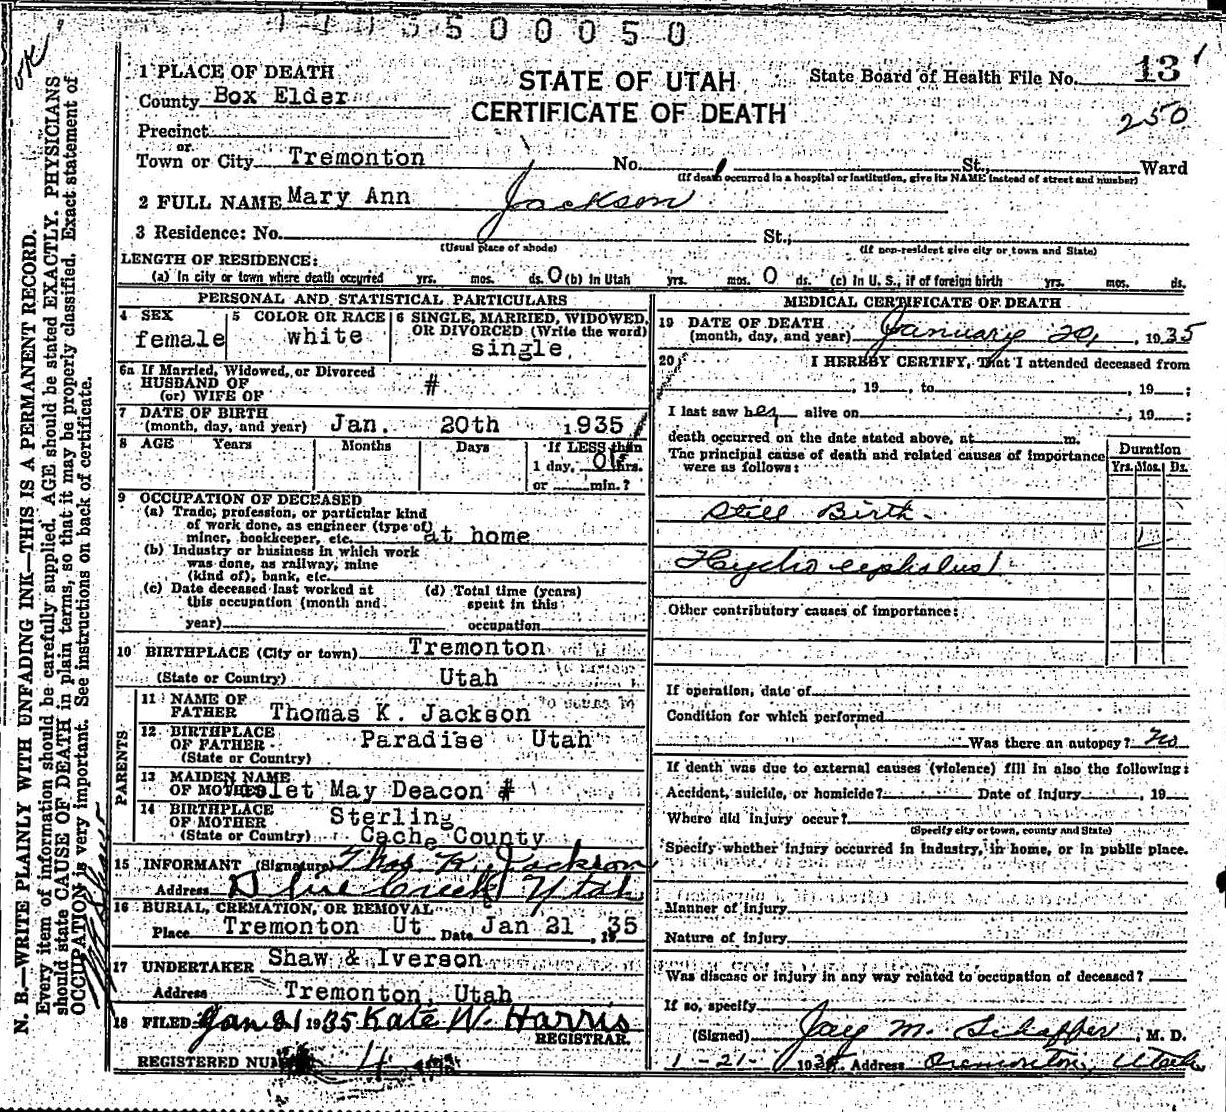 500050
1 PLACE OF DEATH
STATE OF UTAH
State Board of Health File No. 13
County Box Elder
CERTIFICATE OF DEATH
250
Precinct
or
Town or City Tremonton No. St., Ward
(If death occurred in a hospital or institution, give its NAME instead of street and number)
2 FULL NAME Mary Ann Jackson
3 Residence: No. St.,
(Usual place of abode) (If non-resident give city or town and State)
LENGTH OF RESIDENCE:
(a) In city or town where death occurred yrs. mos. ds. 0 (b) In Utah yrs. mos. 0 ds. (c) In U. S., if of foreign birth yrs. mos. ds.
PERSONAL AND STATISTICAL PARTICULARS
4 SEX
female
5 COLOR OR RACE
white
6 SINGLE, MARRIED, WIDOWED,
OR DIVORCED (Write the word)
single
6a If Married, Widowed, or Divorced
HUSBAND OF
(or) WIFE OF #
7 DATE OF BIRTH
(month, day, and year) Jan. 20th 1935
8 AGE Years Months Days If LESS than
1 day, 0 hrs.
or min.?
9 OCCUPATION OF DECEASED
(a) Trade, profession, or particular kind
of work done, as engineer (type of)
miner, bookkeeper, etc. at home
(b) Industry or business in which work
was done, as railway, mine
(kind of), bank, etc.
(c) Date deceased last worked at
this occupation (month and
year)
(d) Total time (years)
spent in this
occupation
10 BIRTHPLACE (City or town) Tremonton
(State or Country) Utah
PARENTS
11 NAME OF
FATHER Thomas K. Jackson
12 BIRTHPLACE
OF FATHER Paradise Utah
(State or Country)
13 MAIDEN NAME
OF MOTHER let May Deacon #
14 BIRTHPLACE
OF MOTHER Sterling
(State or Country) Cache County
15 INFORMANT (Signature) Thos K. Jackson
Address Blue Creek Utah
16 BURIAL, CREMATION, OR REMOVAL
Place Tremonton Ut Date Jan 21, 1935
17 UNDERTAKER Shaw & Iverson
Address Tremonton, Utah
18 FILED Jan 21 1935 Kate W. Harris
REGISTRAR.
REGISTERED NUMBER 4
MEDICAL CERTIFICATE OF DEATH
19 DATE OF DEATH
(month, day, and year) January 20, 1935
20 I HEREBY CERTIFY, That I attended deceased from
, 19 , to , 19 ;
I last saw her alive on , 19 ;
death occurred on the date stated above, at m.
The principal cause of death and related causes of importance
were as follows:
Duration
Yrs. Mos. Ds.
Still Birth
Hydrocephalus
Other contributory causes of importance:
If operation, date of
Condition for which performed
Was there an autopsy? no
If death was due to external causes (violence) fill in also the following:
Accident, suicide, or homicide? Date of injury , 19 .
Where did injury occur?
(Specify city or town, county and State)
Specify whether injury occurred in industry, in home, or in public place.
Manner of injury
Nature of injury
Was disease or injury in any way related to occupation of deceased?
If so, specify
(Signed) Jay M. Schaffer, M. D.
1-21- 1935. Address Tremonton, Utah
N. B.—WRITE PLAINLY WITH UNFADING INK—THIS IS A PERMANENT RECORD.
Every item of information should be carefully supplied. AGE should be stated EXACTLY. PHYSICIANS
should state CAUSE OF DEATH in plain terms, so that it may be properly classified. Exact statement of
OCCUPATION is very important. See instructions on back of certificate.